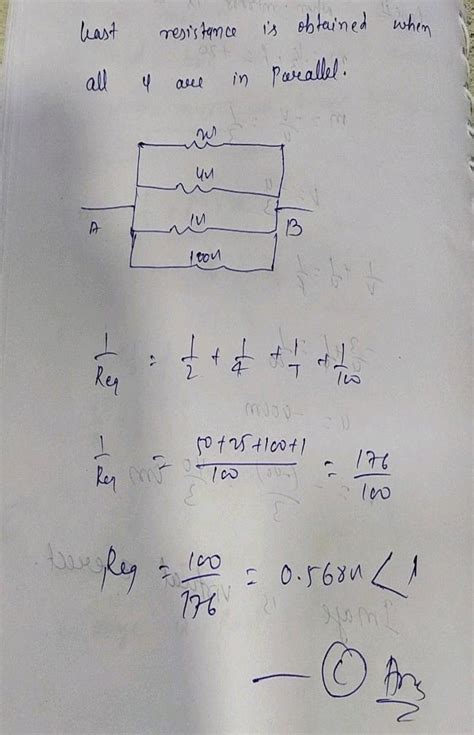 Least resistance is obtained when
all 4 are in Parallel.
2Ω
4Ω
A 1Ω B
100Ω
1/Req = 1/2 + 1/4 + 1/1 + 1/100
1/Req = (50+25+100+1)/100 = 176/100
Req = 100/176 = 0.568Ω < 1
— (C) Ans